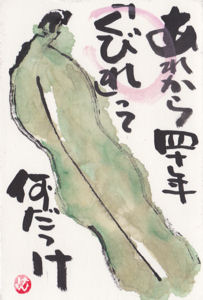 あれから四十年
「くびれ」って
何だっけ